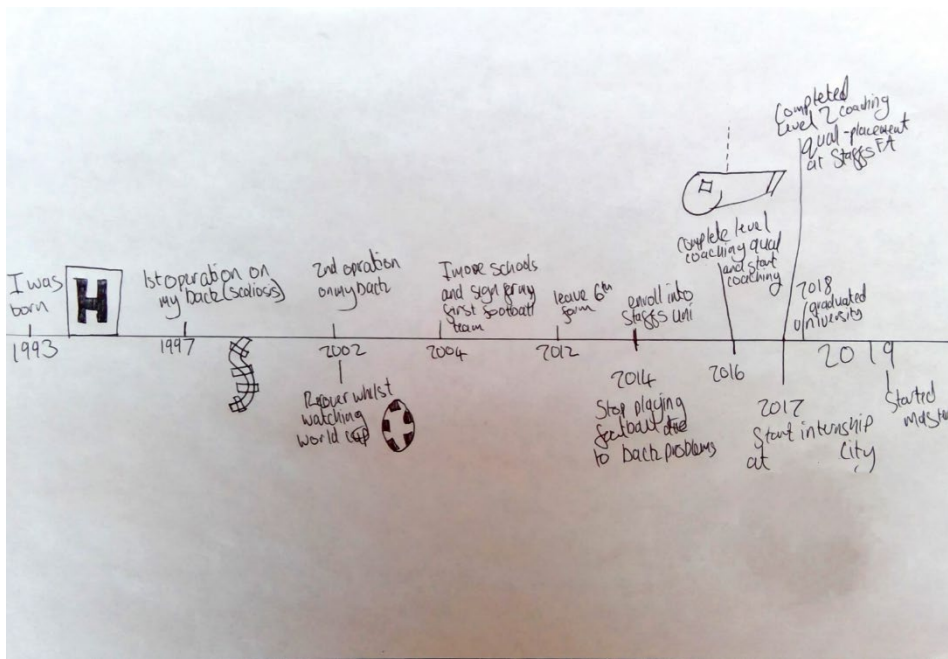 I was
born
H
1993
1st operation on
my back (scoliosis)
1997
2nd opration
on my back
2002
Recover whilst
watching
world cup
I move schools
and sign for my
first football
team
2004
leave 6th
form
2012
enroll into
Staffs uni
2014
Stop playing
football due
to back problems
complete level
coaching qual
and start
coaching
2016
Completed
level 2 coaching
qual-placement
at Staffs FA
2017
Start internship
at City
2018
graduated
University
2019
Started